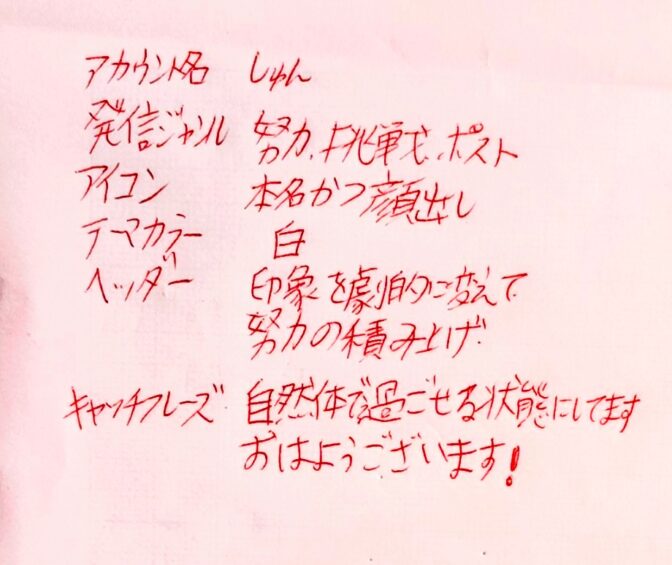 アカウント名 しゅん
発信ジャンル 努力、挑戦、ポスト
アイコン 本名かつ顔出し
テーマカラー 白
ヘッダー 印象を劇的に変えて
努力の積み上げ
キャッチフレーズ 自然体で過ごせる状態にしてます
おはようございます!